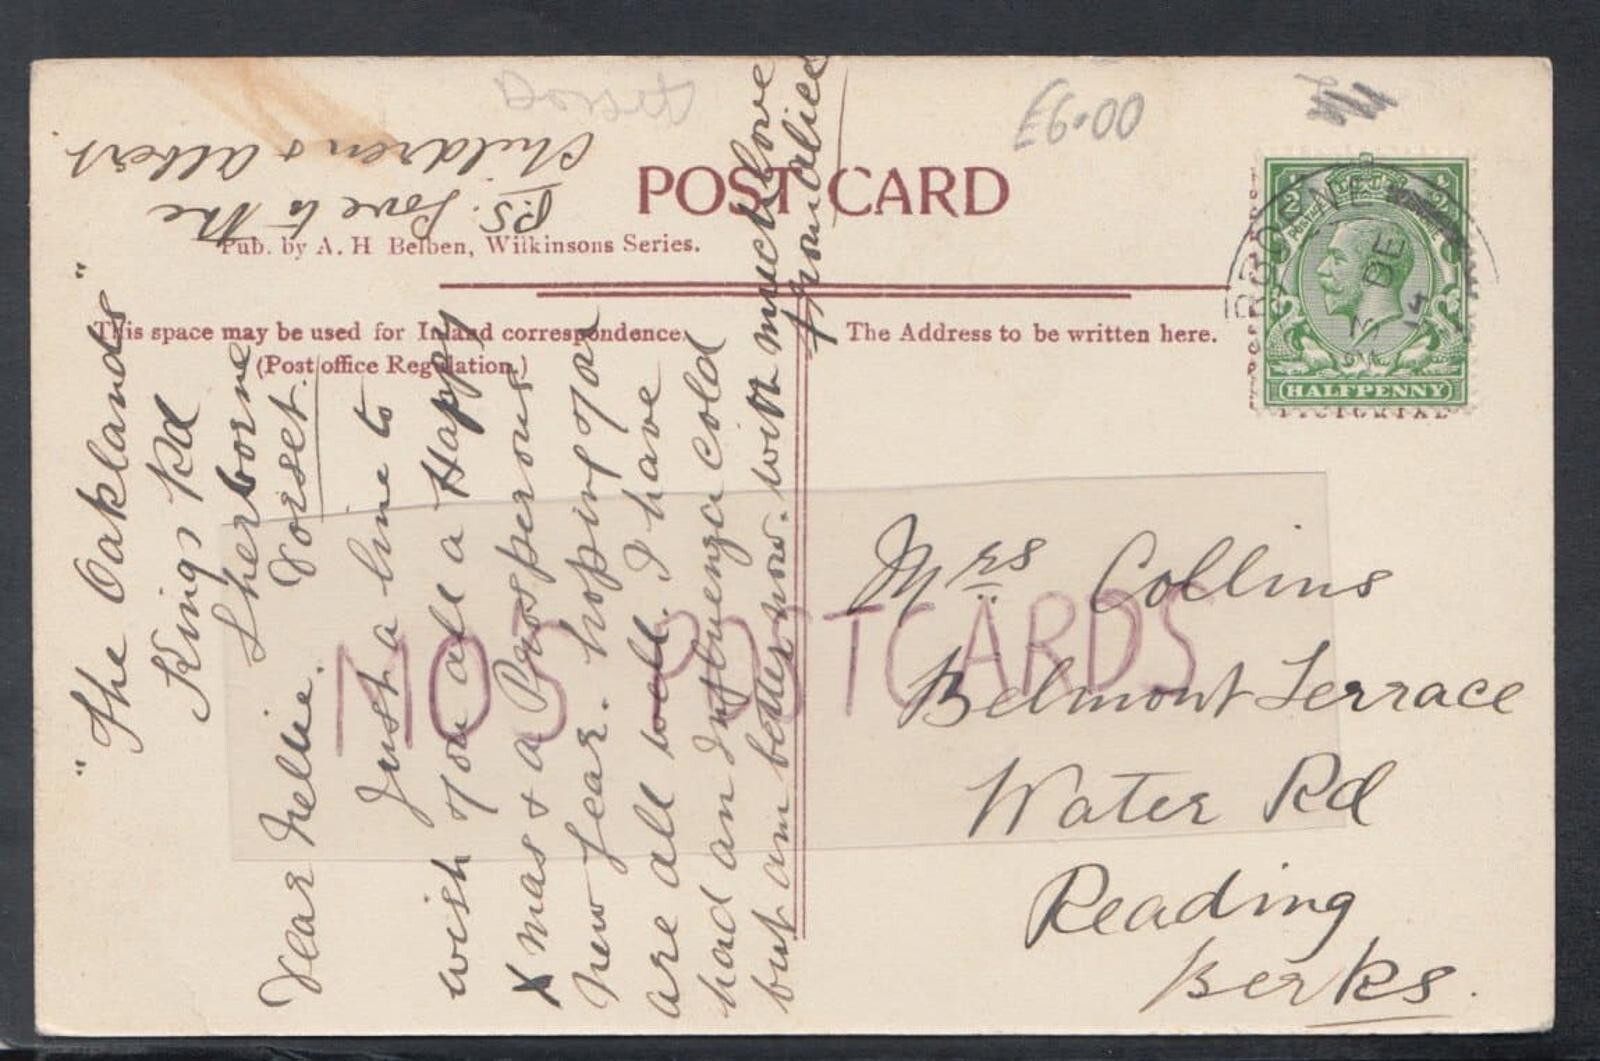 Dorset
£6.00
POST CARD
Pub. by A. H Belben, Wilkinsons Series.
This space may be used for Inland correspondence.
(Post office Regulation.)
The Address to be written here.
HALFPENNY
"The Oaklands"
Kings Rd
Sherborne
Dorset.
Dear Nellie.
Just a line to
wish you all a Happy
Xmas & a Prosperous
New Year. hoping you
are all well. I have
had an Influenza cold
but am better now. with much love
from Alice
P.S. Love to the
Children & Albert.
Mrs Collins
Belmont Terrace
Water Rd
Reading
Berks.
MO5 POSTCARDS